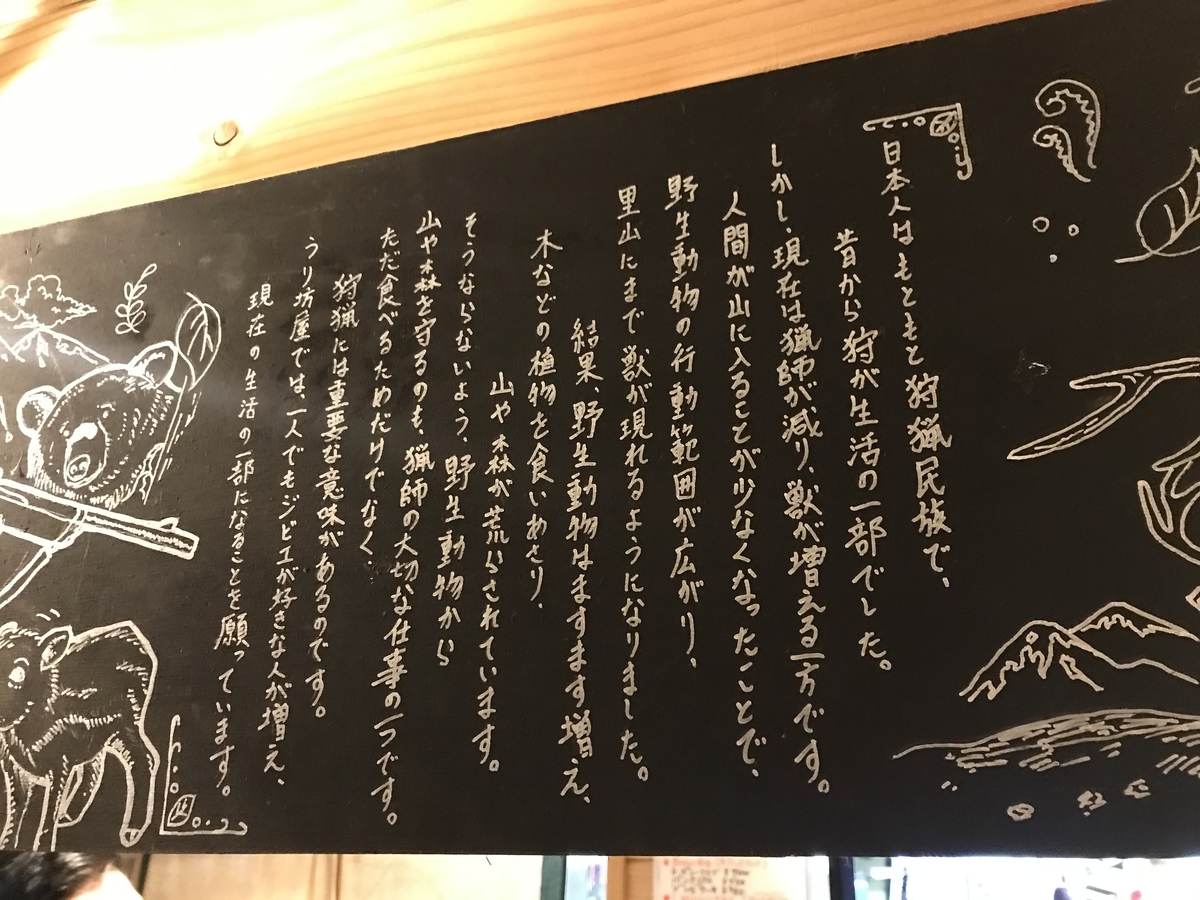 日本人はもともと狩猟民族で、
昔から狩が生活の一部でした。
しかし、現在は猟師が減り、獣が増える一方です。
人間が山に入ることが少なくなったことで、
野生動物の行動範囲が広がり、
里山にまで獣が現れるようになりました。
結果、野生動物はますます増え、
木などの植物を食いあさり、
山や森が荒らされています。
そうならないよう、野生動物から
山や森を守るのも、猟師の大切な仕事の一つです。
ただ食べるためだけでなく、
狩猟には重要な意味があるのです。
うり坊屋では、一人でもジビエが好きな人が増え、
現在の生活の一部になることを願っています。